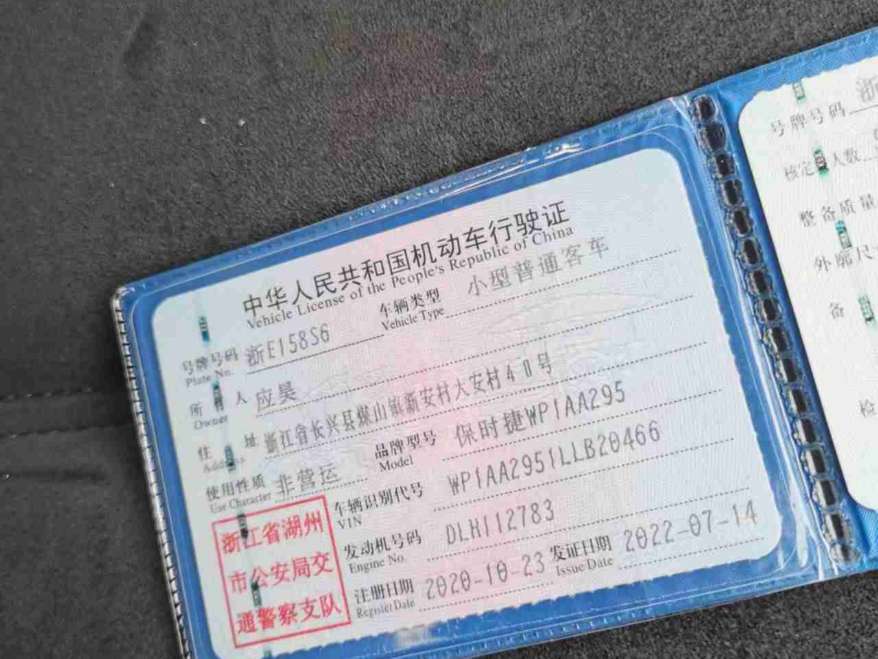 中华人民共和国机动车行驶证
Vehicle License of the People's Republic of China
号牌号码 浙E158S6 车辆类型 小型普通客车
Plate No. Vehicle Type
所有人 应昊
Owner
住址 浙江省长兴县煤山镇新安村大安村40号
Address
使用性质 非营运 品牌型号 保时捷WP1AA295
Use Character Model
车辆识别代号 WP1AA2951LLB20466
VIN
发动机号码 DLH112783
Engine No.
注册日期 2020-10-23 发证日期 2022-07-14
Register Date Issue Date
浙江省湖州
市公安局交
通警察支队
号牌号码 浙
核定 人数
整备质量
外廓尺
备
检